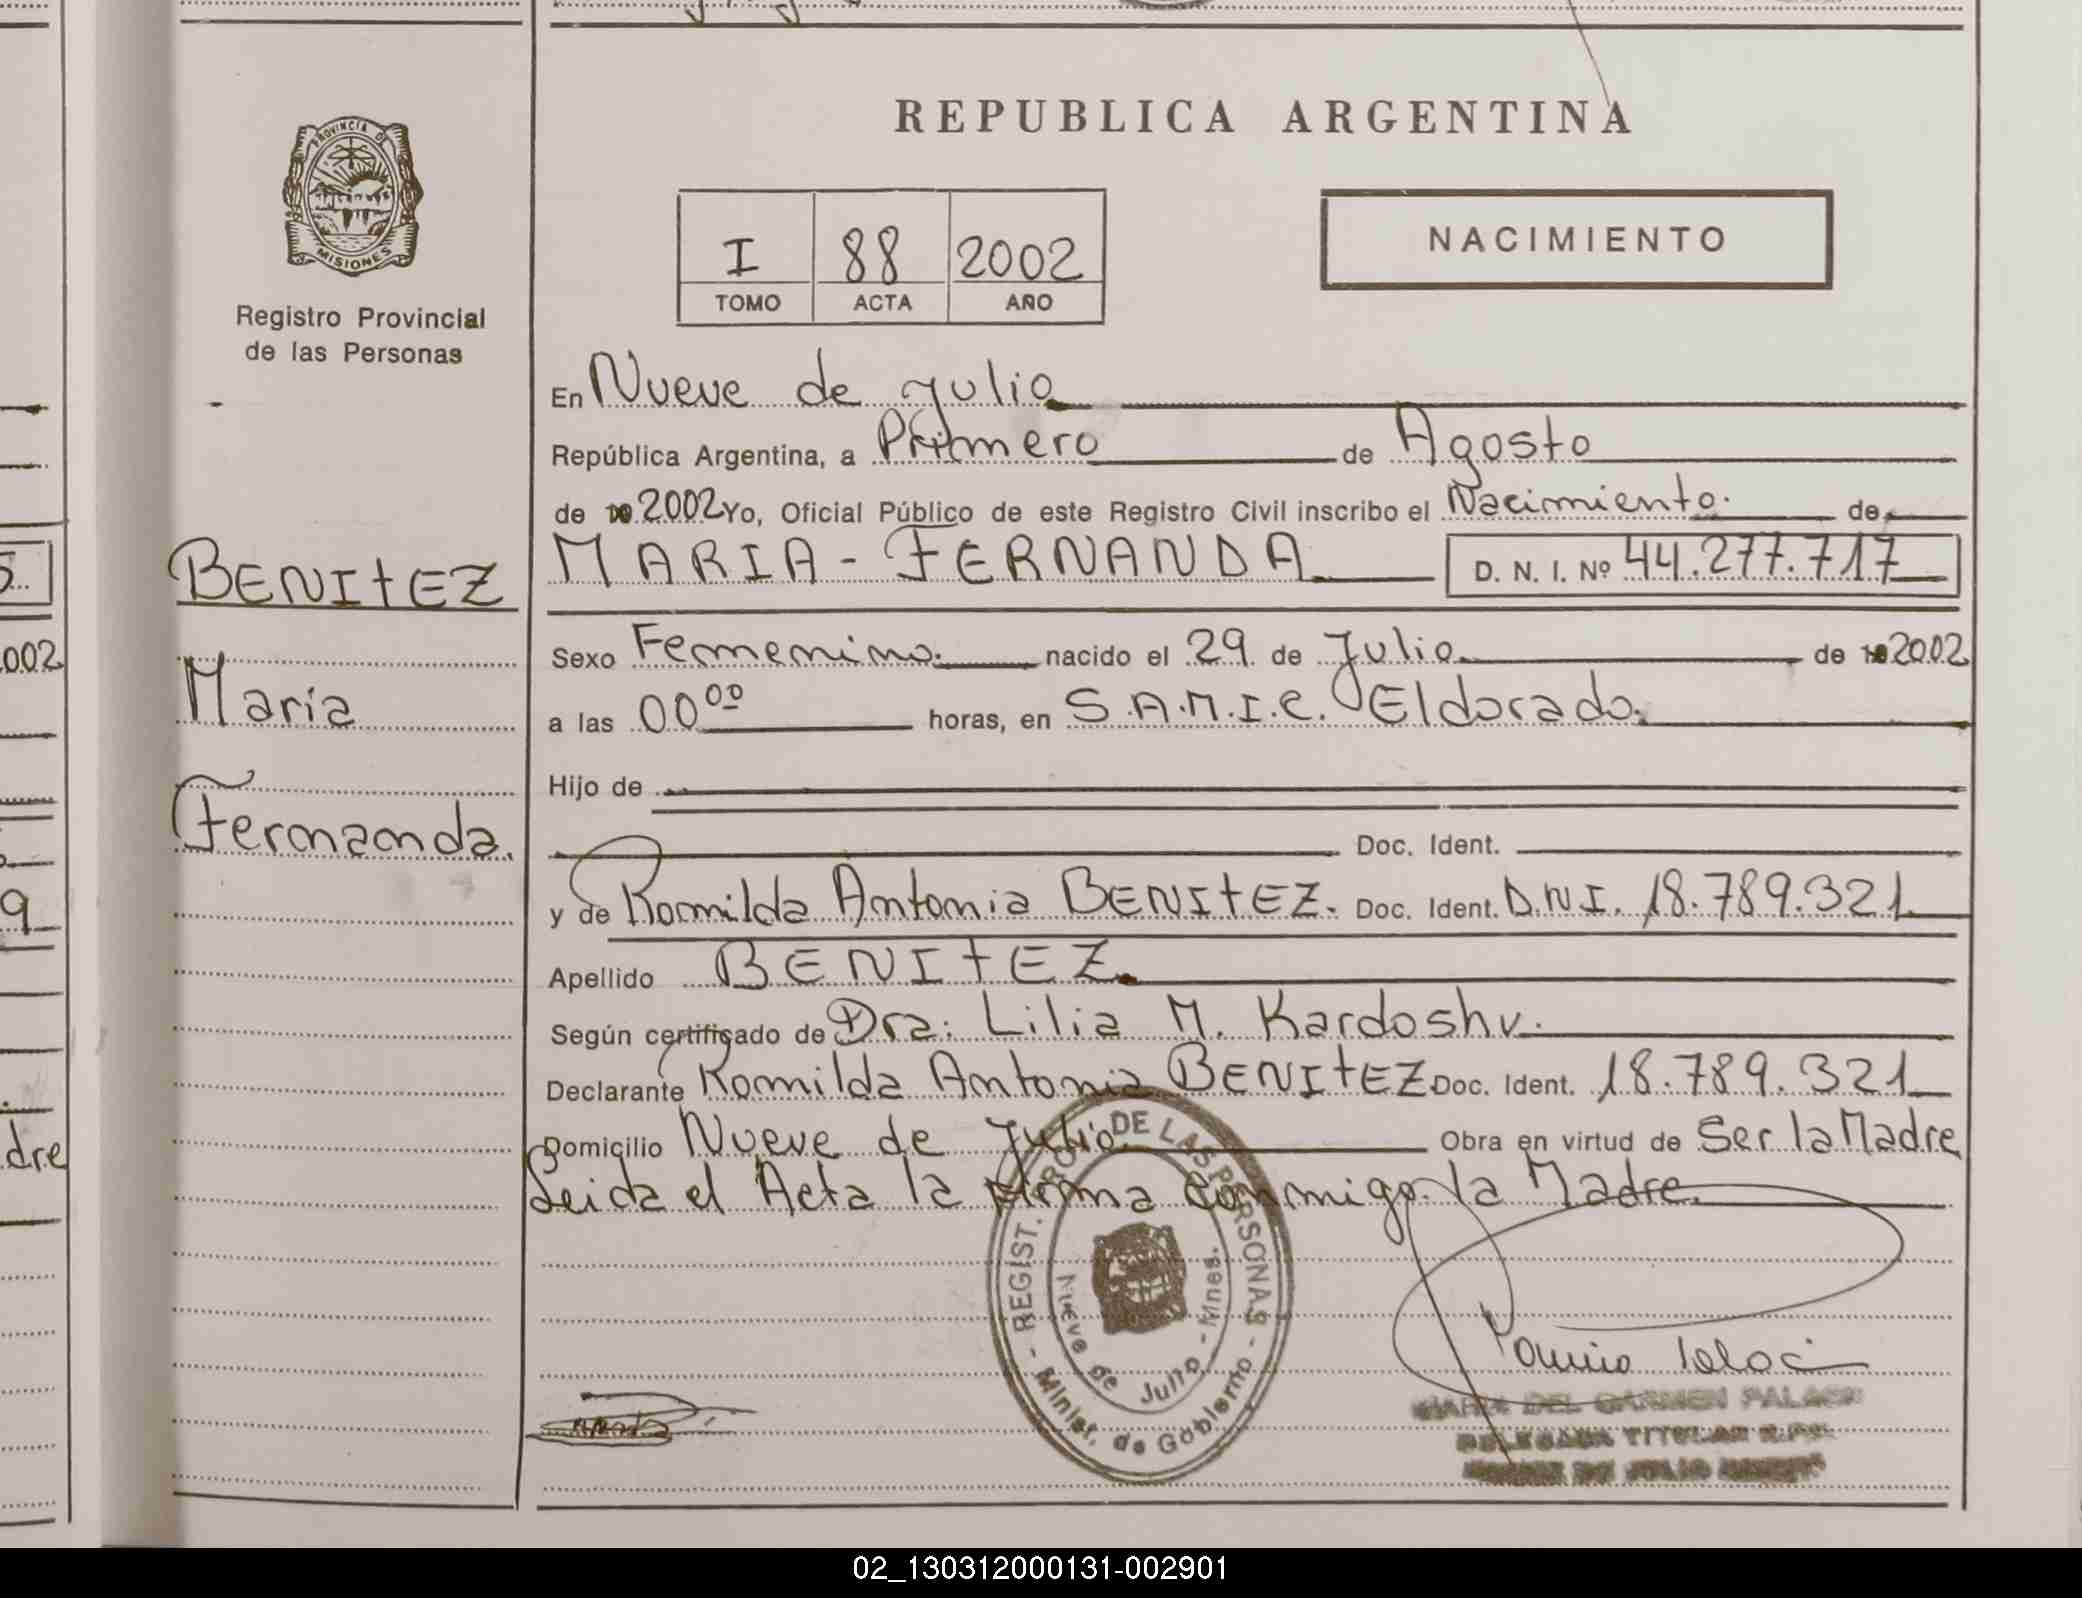 PROVINCIA DE
MISIONES
Registro Provincial
de las Personas
BENITEZ
Maria
Fernanda.
REPUBLICA ARGENTINA
I 88 2002
TOMO ACTA AÑO
NACIMIENTO
En Nueve de Julio
República Argentina, a Primero de Agosto
de 2002 Yo, Oficial Público de este Registro Civil inscribo el Nacimiento. de
MARIA - FERNANDA D. N. I. Nº 44.277.717
Sexo Femenino. nacido el 29 de Julio de 2002
a las 00⁰⁰ horas, en S.A.M.I.C. Eldorado.
Hijo de
Doc. Ident.
y de Romilda Antonia BENITEZ. Doc. Ident. D.N.I. 18.789.321
Apellido BENITEZ.
Según certificado de Dra. Lilia M. Kardoshv.
Declarante Romilda Antonia BENITEZ Doc. Ident. 18.789.321
Domicilio Nueve de Julio. Obra en virtud de Ser la Madre
Leida el Acta la firma conmigo la Madre.
REGIST. PRO. DE LAS PERSONAS
- Minist. de Gobierno -
Nueve de Julio - Mnes.
MARIA DEL CARMEN
DELEGADA TITULAR
DE JULIO
002
9
dre
02_130312000131-002901